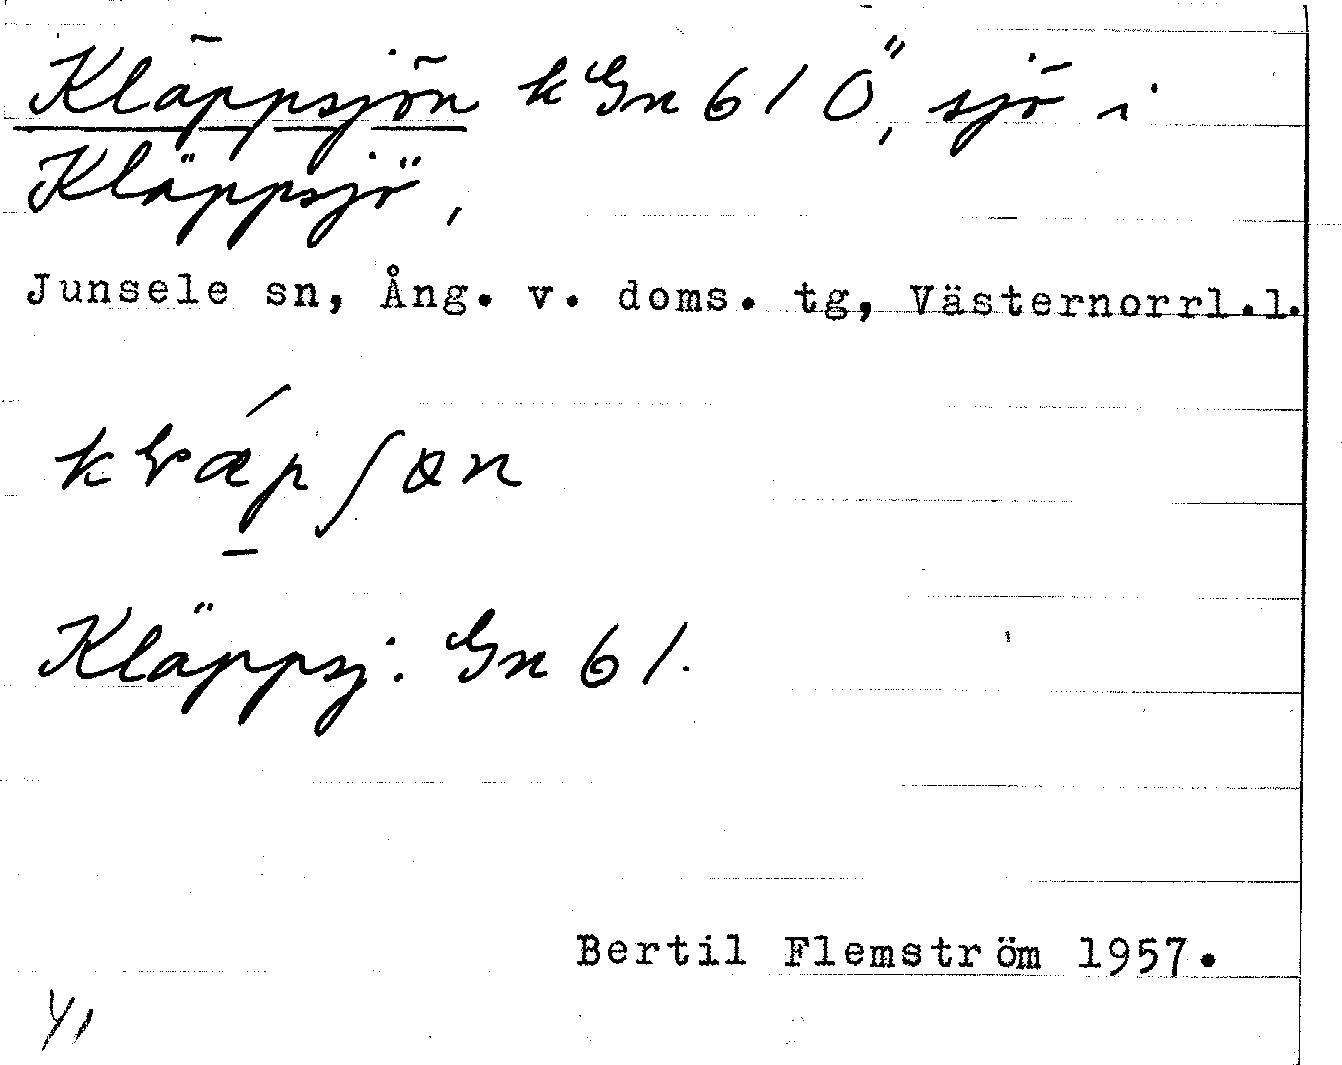 Kläppsjön k Gn 61 Ö, sjö i
Kläppsjö,
Junsele sn, Ång. v. doms. tg, Västernorrl.l.
Kläppsj. Gn 61.
Bertil Flemström 1957.